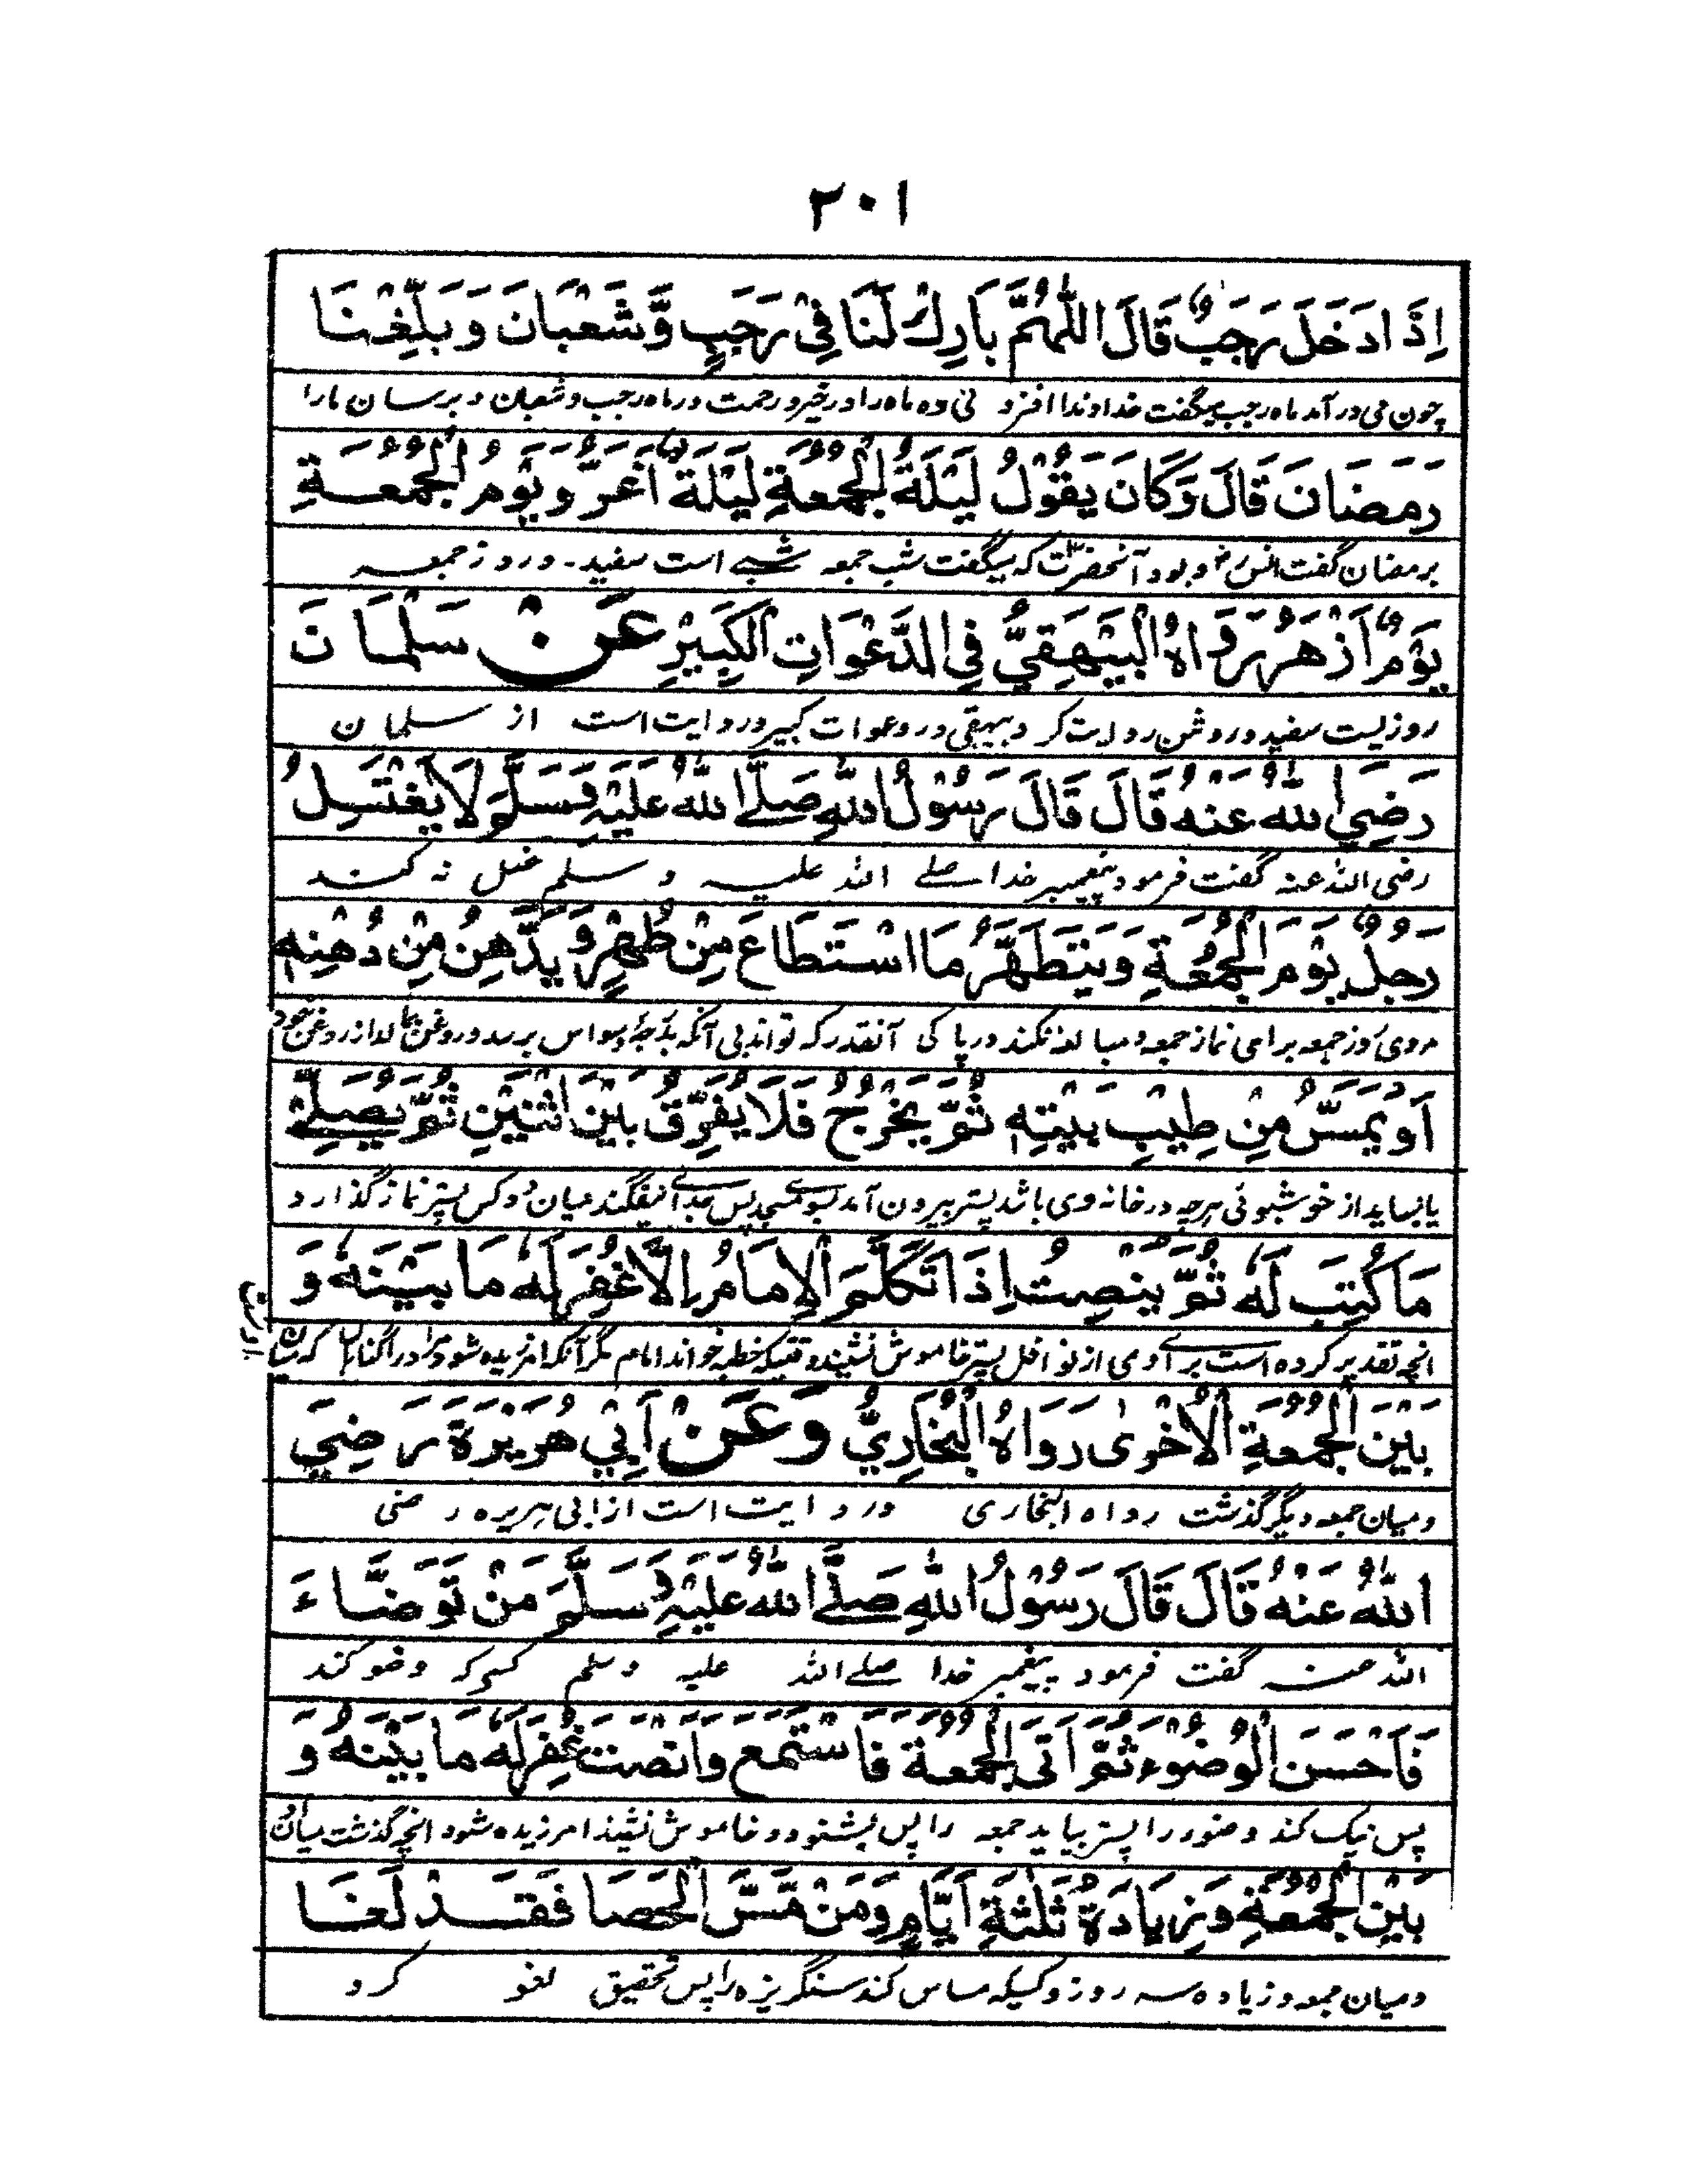 ۲۰۱
اِذَا دَخَلَ رَجَبٌ قَالَ اللّٰهُمَّ بَارِكْ لَنَا فِيْ رَجَبٍ وَّشَعْبَانَ وَبَلِّغْنَا
چون می در آمد ماه رجب میگفت خداوندا افزونی ده ما را در خیر و رحمت در ماه رجب و شعبان و برسان ما را
رَمَضَانَ قَالَ وَكَانَ يَقُوْلُ لَيْلَةُ الْجُمُعَةِ لَيْلَةٌ اَغَرُّ وَيَوْمُ الْجُمُعَةِ
برمضان گفت انس رض و بود آنحضرت که میگفت شب جمعه شبے است سفید۔ و روز جمعه
يَوْمٌ اَزْهَرُ رَوَاهُ الْبَيْهَقِيُّ فِي الدَّعَوَاتِ الْكَبِيْرِ عَنْ سَلْمَانَ
روزیست سفید و روشن روایت کرد بیهقی در دعوات کبیر و روایت است از سلمان
رَضِيَ اللّٰهُ عَنْهُ قَالَ قَالَ رَسُوْلُ اللّٰهِ صَلَّے اللّٰهُ عَلَيْهِ وَسَلَّمَ لَا يَغْتَسِلُ
رضی الله عنه گفت فرمود پیغمبر خدا صلے الله علیه و سلم غسل نه کند
رَجُلٌ يَوْمَ الْجُمُعَةِ وَيَتَطَهَّرُ مَا اسْتَطَاعَ مِنْ طُهْرٍ وَّيَدَّهِنُ مِنْ دُهْنِهٖ
مردی روز جمعه برای نماز جمعه و مبالغه نکند در پاکی آنقدر که تواند بی آنکه بدرجه وسواس برسد و روغن نمالد از روغن خود
اَوْ يَمَسُّ مِنْ طِيْبِ بَيْتِهٖ ثُمَّ يَخْرُجُ فَلَا يُفَرِّقُ بَيْنَ اثْنَيْنِ ثُمَّ يُصَلِّے
یا بساید از خوشبوئی هرچه در خانه وی باشد پستر بیرون آمد بسوے مسجد پس جدائے نیفگند میان دو کس پستر نماز گذارد
مَا كُتِبَ لَهٗ ثُمَّ يَنْصِتُ اِذَا تَكَلَّمَ الْاِمَامُ اِلَّا غُفِرَ لَهٗ مَا بَيْنَهٗ وَ
انچه تقدیر کرده است برائے وی از نوافل پستر خاموش نشیند وقتیکه خطبه خواند امام مگر آنکه امرزیده شود مر او را گناہان که میان
بَيْنَ الْجُمُعَةِ الْاُخْرٰى رَوَاهُ الْبُخَارِيُّ وَعَنْ اَبِيْ هُرَيْرَةَ رَضِيَ
و میان جمعه دیگر گذشت رواه البخاری و روایت است از ابی هریره رضی
اللّٰهُ عَنْهُ قَالَ قَالَ رَسُوْلُ اللّٰهِ صَلَّے اللّٰهُ عَلَيْهِ وَسَلَّمَ مَنْ تَوَضَّاءَ
الله عنه گفت فرمود پیغمبر خدا صلے الله علیه و سلم کسیکه وضو کند
فَاَحْسَنَ الْوُضُوْءَ ثُمَّ اَتَى الْجُمُعَةَ فَاسْتَمَعَ وَاَنْصَتَ غُفِرَ لَهٗ مَا بَيْنَهٗ وَ
پس نیک کند وضو را پستر بیاید جمعه را پس بشنود و خاموش نشیند امرزیده شود انچه گذشت میان او
بَيْنَ الْجُمُعَةِ وَزِيَادَةُ ثَلٰثَةِ اَيَّامٍ وَمَنْ مَّسَّ الْحَصَا فَقَدْ لَغَا
و میان جمعه و زیاده سه روز و کسیکه مساس کند سنگریزه را پس تحقیق لغو کرد